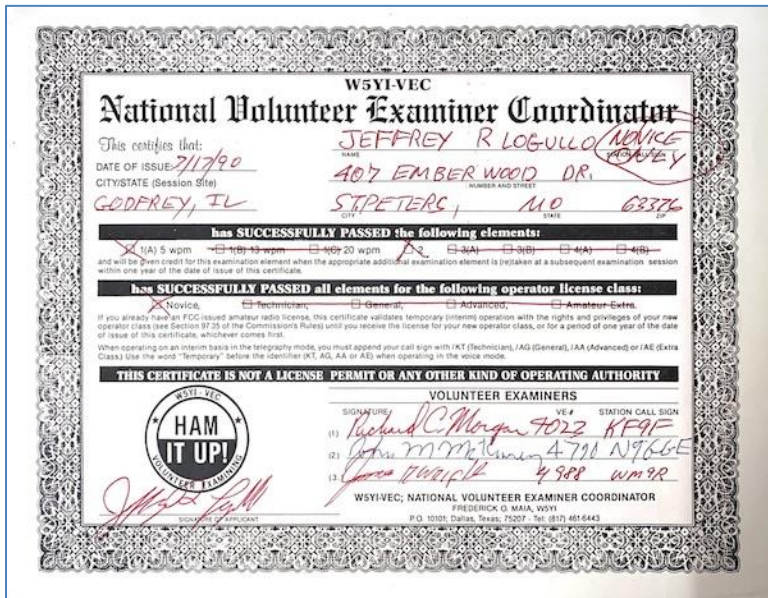 W5YI-VEC
National Volunteer Examiner Coordinator
This certifies that:
JEFFREY R LOGULLO NOVICE
NAME STATION CALL SIGN
DATE OF ISSUE: 7/17/90
407 EMBER WOOD DR.
CITY/STATE (Session Site) NUMBER AND STREET
GODFREY, IL ST. PETERS, MO 63376
CITY STATE ZIP
has SUCCESSFULLY PASSED the following elements:
1(A) 5 wpm 1(B) 13 wpm 1(C) 20 wpm 2 3(A) 3(B) 4(A) 4(B)
and will be given credit for this examination element when the appropriate additional examination element is (re)taken at a subsequent examination session
within one year of the date of issue of this certificate.
has SUCCESSFULLY PASSED all elements for the following operator license class:
Novice, Technician, General, Advanced, Amateur Extra.
If you already have an FCC-issued amateur radio license, this certificate validates temporary (interim) operation with the rights and privileges of your new
operator class (see Section 97.35 of the Commission's Rules) until you receive the license for your new operator class, or for a period of one year of the date
of issue of this certificate, whichever comes first.
When operating on an interim basis in the telegraphy mode, you must append your call sign with /KT (Technician), /AG (General), /AA (Advanced) or /AE (Extra
Class.) Use the word "Temporary" before the identifier (KT, AG, AA or AE) when operating in the voice mode.
THIS CERTIFICATE IS NOT A LICENSE PERMIT OR ANY OTHER KIND OF OPERATING AUTHORITY
W5YI-VEC
HAM
IT UP!
VOLUNTEER EXAMINING
SIGNATURE OF APPLICANT
VOLUNTEER EXAMINERS
SIGNATURE VE# STATION CALL SIGN
(1) Richard C. Morgan 7023 KF9F
(2) John M 4790 N9GGE
(3) 4988 WM9R
W5YI-VEC; NATIONAL VOLUNTEER EXAMINER COORDINATOR
FREDERICK O. MAIA, W5YI
P.O. 10101; Dallas, Texas; 75207 - Tel: (817) 461-6443